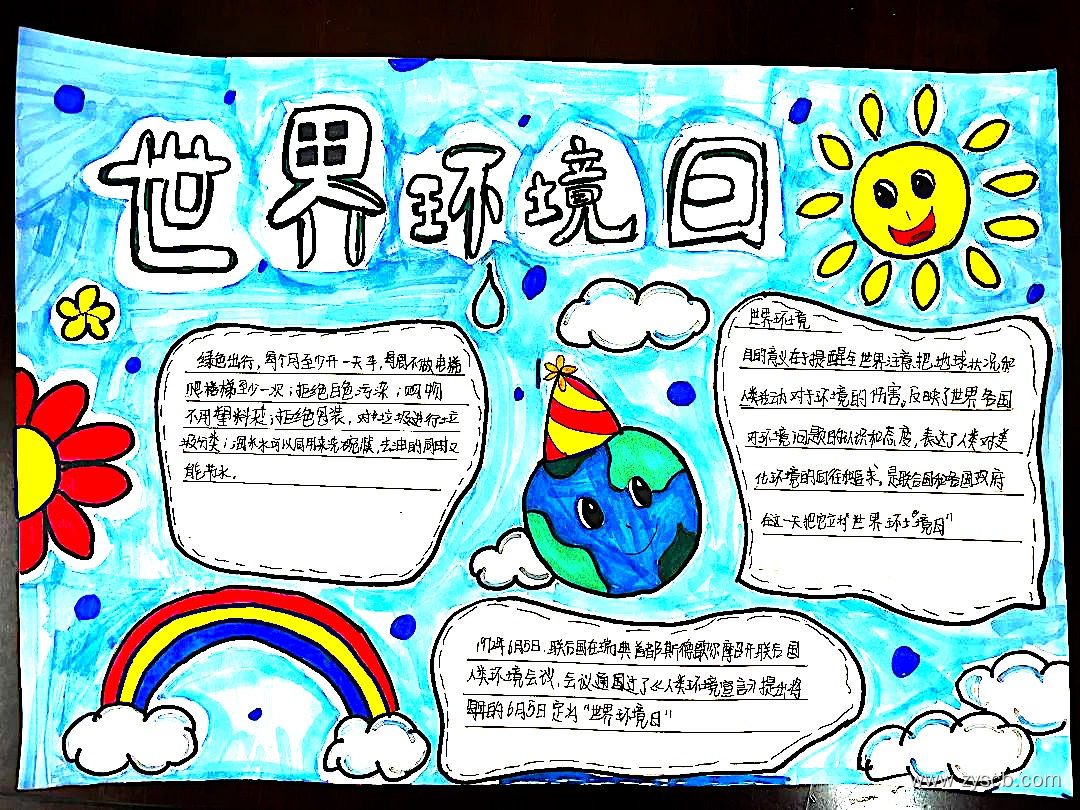 世界环境日
绿色出行,每个月至少开一天车,每周不做电梯
爬楼梯至少一次;拒绝白色污染;购物
不用塑料袋;拒绝包装,对垃圾进行垃
圾分类;淘米水可以回用来洗碗筷,去油的同时又
能节水.
世界环境
目的意义在于提醒全世界注意把地球状况和
人类活动对于环境的伤害。反映了世界各国
对环境问题的认识和态度,表达了人类对美
化环境的向往和追求,是联合国和各国政府
在这一天把它立为"世界环境日"
1972年6月5日,联合国在瑞典首都斯德歌尔摩召开联合国
人类环境会议,会议通国过了《人类环境宣言》提出将
每年的6月5日定为"世界环境日"
www.zyscb.com